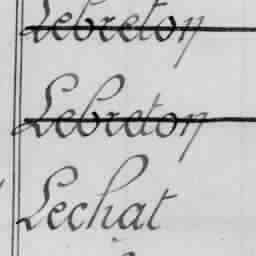 Lebreton
Lebreton
Lechat